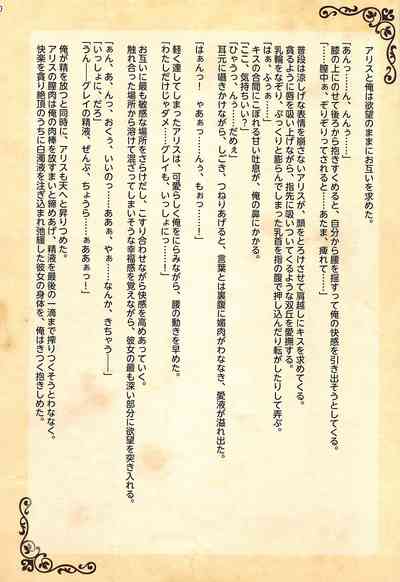 アリスと俺は欲望のままにお互いを求めた。
「あんっ……ん、んんぅ……」
膝の上にのせて後ろから抱きすくめると、自分から腰を揺すって俺の快感を引き出そうとしてくる。
「……膣中ぁ、ぞりぞりってされると……あたま、痺れて……」
普段は涼しげな表情を崩さないアリスが、顔をとろけさせて肩越しにキスを求めてくる。
貪るように唇を吸い上げながら、指先に吸いついてくるような双丘を愛撫する。
乳輪をなぞり、ぷっくりと膨らんでしまった乳首を指の腹で押し込んだり転がしたりして弄ぶ。
「はぁ、ふうぁ……」
キスの合間にこぼれる甘い吐息が、俺の鼻にかかる。
「ここ、気持ちいい？」
「ひゃうっ、んぅ……だめぇ」
耳元に囁きかけながら、しごき、つねりあげると、言葉とは裏腹に媚肉がわななき、愛液が溢れ出た。
「はぁんっ！　ゃあぁっ……んぅ、もぉっ……！」
軽く達してしまったアリスは、可愛らしく俺をにらみながら、腰の動きを早めた。
「わたしだけじゃダメ……グレイも、いっしょにっ……！」
お互いに最も敏感な場所をさらけだし、こすり合わせながら快感を高めあっていく。
触れ合った場所から溶けて混ざってしまいそうな幸福感を覚えながら、彼女の最も深い部分に欲望を突き入れる。
「ぁん、あ、んっ、おくぅ、いいのっ……あぁぁ、ゃぁっ……なんか、きちゃう――」
「いっしょに、だろ」
「うん――グレイの精液、ぜんぶ、ちょうら……ぁあぁぁっ！」
俺が精を放つと同時に、アリスも天へと昇りつめた。
アリスの膣肉は俺の肉棒を放すまいと締めあげ、精液を最後の一滴まで搾りつくそうとわななく。
快楽を貪り絶頂のうちに白濁液を注ぎ込まれ弛緩した彼女の身体を、俺はきつく抱きしめた。